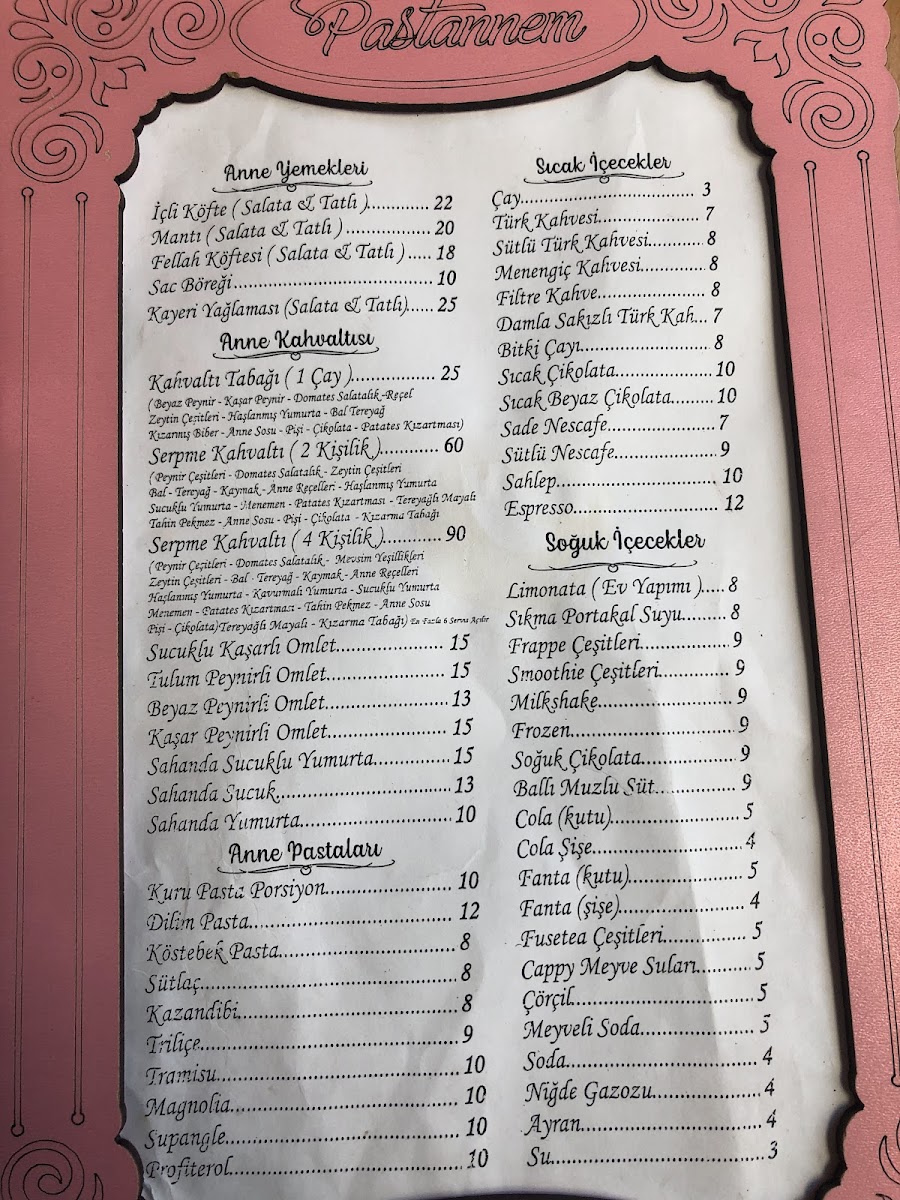 Pastannem
Anne Yemekleri
İçli Köfte ( Salata & Tatlı )............. 22
Mantı ( Salata & Tatlı )................... 20
Fellah Köftesi ( Salata & Tatlı )..... 18
Sac Böreği.................................... 10
Kayeri Yağlaması (Salata & Tatlı)...... 25
Anne Kahvaltısı
Kahvaltı Tabağı ( 1 Çay )................ 25
( Beyaz Peynir - Kaşar Peynir - Domates Salatalık-Reçel
Zeytin Çeşitleri - Haşlanmış Yumurta - Bal Tereyağ
Kızarmış Biber - Anne Sosu - Pişi - Çikolata - Patates Kızartması)
Serpme Kahvaltı ( 2 Kişilik )............ 60
( Peynir Çeşitleri - Domates Salatalık - Zeytin Çeşitleri
Bal - Tereyağ - Kaymak - Anne Reçelleri - Haşlanmış Yumurta
Sucuklu Yumurta - Menemen - Patates Kızartması - Tereyağlı Mayalı
Tahin Pekmez - Anne Sosu - Pişi - Çikolata - Kızarma Tabağı
Serpme Kahvaltı ( 4 Kişilik )........... 90
( Peynir Çeşitleri - Domates Salatalık - Mevsim Yeşillikleri
Zeytin Çeşitleri - Bal - Tereyağ - Kaymak - Anne Reçelleri
Haşlanmış Yumurta - Kavurmalı Yumurta - Sucuklu Yumurta
Menemen - Patates Kızartması - Tahin Pekmez - Anne Sosu
Pişi - Çikolata)Tereyağlı Mayalı - Kızarma Tabağı) En Fazla 6 Servis Açılır
Sucuklu Kaşarlı Omlet.................... 15
Tulum Peynirli Omlet...................... 15
Beyaz Peynirli Omlet...................... 13
Kaşar Peynirli Omlet...................... 15
Sahanda Sucuklu Yumurta.............. 15
Sahanda Sucuk............................... 13
Sahanda Yumurta........................... 10
Anne Pastaları
Kuru Pasta Porsiyon...................... 10
Dilim Pasta.................................... 12
Köstebek Pasta............................... 8
Sütlaç............................................. 8
Kazandibi....................................... 8
Triliçe............................................. 9
Tramisu.......................................... 10
Magnolia........................................ 10
Supangle........................................ 10
Profiterol........................................ 10
Sıcak İçecekler
Çay................................... 3
Türk Kahvesi..................... 7
Sütlü Türk Kahvesi............ 8
Menengiç Kahvesi.............. 8
Filtre Kahve...................... 8
Damla Sakızlı Türk Kah... 7
Bitki Çayı.......................... 8
Sıcak Çikolata.................... 10
Sıcak Beyaz Çikolata.......... 10
Sade Nescafe...................... 7
Sütlü Nescafe..................... 9
Sahlep................................ 10
Espresso............................. 12
Soğuk İçecekler
Limonata ( Ev Yapımı )..... 8
Sıkma Portakal Suyu......... 8
Frappe Çeşitleri................. 9
Smoothie Çeşitleri.............. 9
Milkshake........................... 9
Frozen................................ 9
Soğuk Çikolata................... 9
Ballı Muzlu Süt................. 9
Cola (kutu)......................... 5
Cola Şişe............................ 4
Fanta (kutu)....................... 5
Fanta (şişe)........................ 4
Fusetea Çeşitleri................ 5
Cappy Meyve Suları........... 5
Çörçil................................. 5
Meyveli Soda...................... 5
Soda................................... 4
Niğde Gazozu..................... 4
Ayran................................. 4
Su...................................... 3